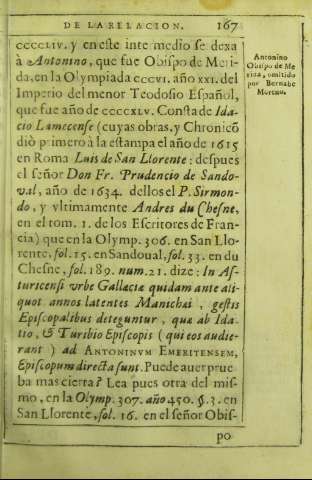 DE LA RELACION. 167
ccccLIV. y en este inte medio se dexa
à Antonino, que fue Obispo de Meri-
da, en la Olympiada CCCVI. año XXI. del
Imperio del menor Teodosio Español,
que fue año de ccccXLV. Consta de Ida-
cio Lamecense (cuyas obras, y Chronicõ
diò primero à la estampa el año de 1615
en Roma Luis de San Llorente: despues
el señor Don Fr. Prudencio de Sando-
val, año de 1634. dellos el P. Sirmon-
do, y vltimamente Andres du Chesne,
en el tom. 1. de los Escritores de Fran-
cia) que en la Olymp. 306. en San Llo-
rente, fol. 15. en Sandoual, fol. 33. en du
Chesne, fol. 189. num. 21. dize: In As-
turicensi vrbe Gallæciæ quidam ante ali-
quot annos latentes Manichæi, gestis
Episcopalibus deteguntur, quæ ab Ida-
tio, & Turibio Episcopis (qui eos audie-
rant) ad ANTONINVM EMERITENSEM,
Episcopum directa sunt. Puede auer prue-
ba mas cierta? Lea pues otra del mis-
mo, en la Olymp. 307. año 450. §. 3. en
San Llorente, fol. 16. en el señor Obis-
po
Antonino
Obispo de Me
rida, omitido
por Bernabe
Moreno.